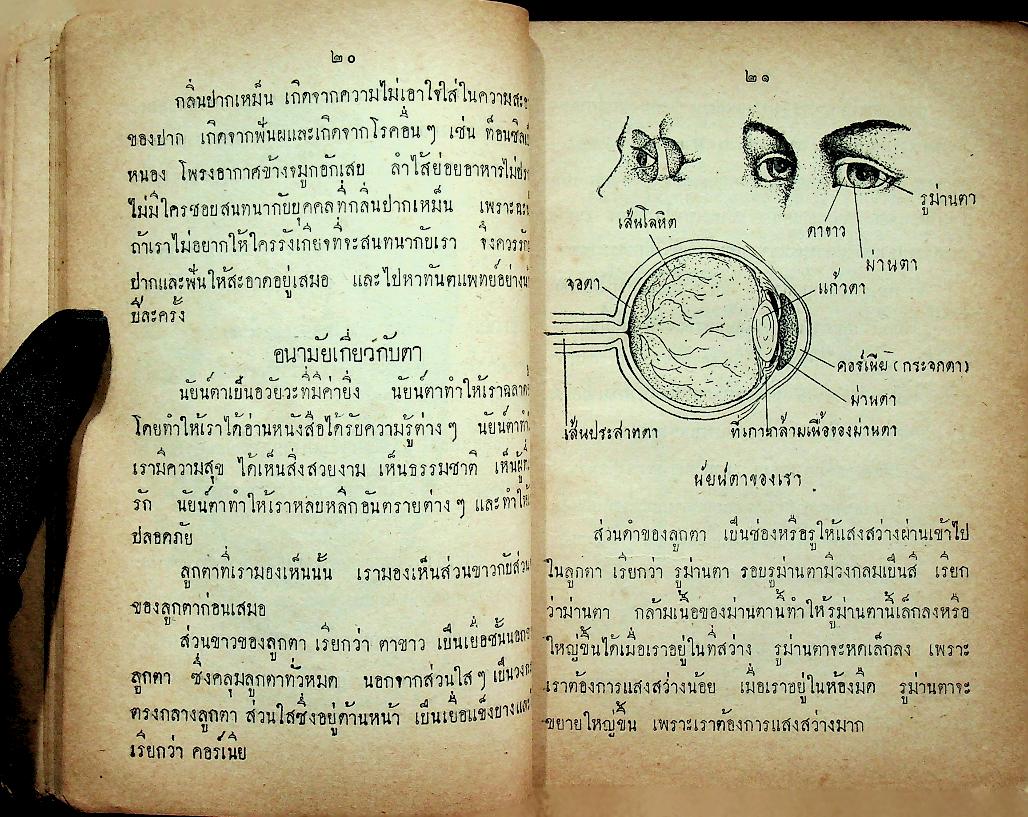 ๒๐
กลิ่นปากเหม็น เกิดจากความไม่เอาใจใส่ในความ
ของปาก เกิดจากฟันผุและเกิดจากโรคอื่น ๆ เช่น
หนอง โพรงอากาศข้างจมูกอักเสบ ลำไส้ย่อยอาหารไม่
ไม่มีใครชอบสนทนากับบุคคลที่กลิ่นปากเหม็น เพราะ
ถ้าเราไม่อยากให้ใครรังเกียจที่จะสนทนากับเรา จึงควร
ปากและฟันให้สะอาดอยู่เสมอ และไปหาทันตแพทย์
ปีละครั้ง
อนามัยเกี่ยวกับตา
นัยน์ตาเป็นอวัยวะที่มีค่ายิ่ง นัยน์ตาทำให้เราฉลาด
โดยทำให้เราได้อ่านหนังสือได้รับความรู้ต่าง ๆ นัยน์ตา
เรามีความสุข ได้เห็นสิ่งสวยงาม เห็นธรรมชาติ
รัก นัยน์ตาทำให้เราหลบหลีกอันตรายต่าง ๆ และทำให้
ปลอดภัย
ลูกตาที่เรามองเห็นนั้น เรามองเห็นส่วนขาวกับส่วน
ของลูกตาก่อนเสมอ
ส่วนขาวของลูกตา เรียกว่า ตาขาว เป็นเยื่อชั้นนอก
ลูกตา ซึ่งคลุมลูกตาทั่วหมด นอกจากส่วนใส ๆ เป็นวง
ตรงกลางลูกตา ส่วนใสซึ่งอยู่ด้านหน้า เป็นเยื่อแข็งบาง
เรียกว่า คอร์เนีย
๒๑
รูม่านตา
ตาขาว
ม่านตา
เส้นโลหิต
จอตา
แก้วตา
คอร์เนีย (กระจกตา)
ม่านตา
เส้นประสาทตา
ที่เกาะกล้ามเนื้อของม่านตา
นัยน์ตาของเรา
ส่วนดำของลูกตา เป็นช่องหรือรูให้แสงสว่างผ่านเข้าไป
ในลูกตา เรียกว่า รูม่านตา รอบรูม่านตามีวงกลมเป็นสี เรียก
ว่าม่านตา กล้ามเนื้อของม่านตานี้ทำให้รูม่านตานี้เล็กลงหรือ
ใหญ่ขึ้นได้เมื่อเราอยู่ในที่สว่าง รูม่านตาจะหดเล็กลง เพราะ
เราต้องการแสงสว่างน้อย เมื่อเราอยู่ในห้องมืด รูม่านตาจะ
ขยายใหญ่ขึ้น เพราะเราต้องการแสงสว่างมาก